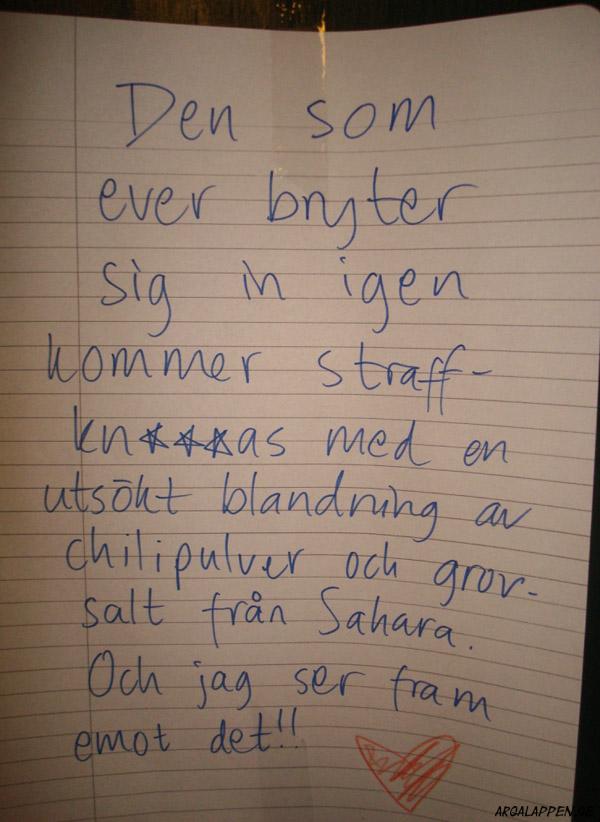 Den som
ever bryter
sig in igen
kommer straff-
kn★★★as med en
utsökt blandning av
chilipulver och grov-
salt från Sahara.
Och jag ser fram
emot det!!
ARGALAPPEN.SE